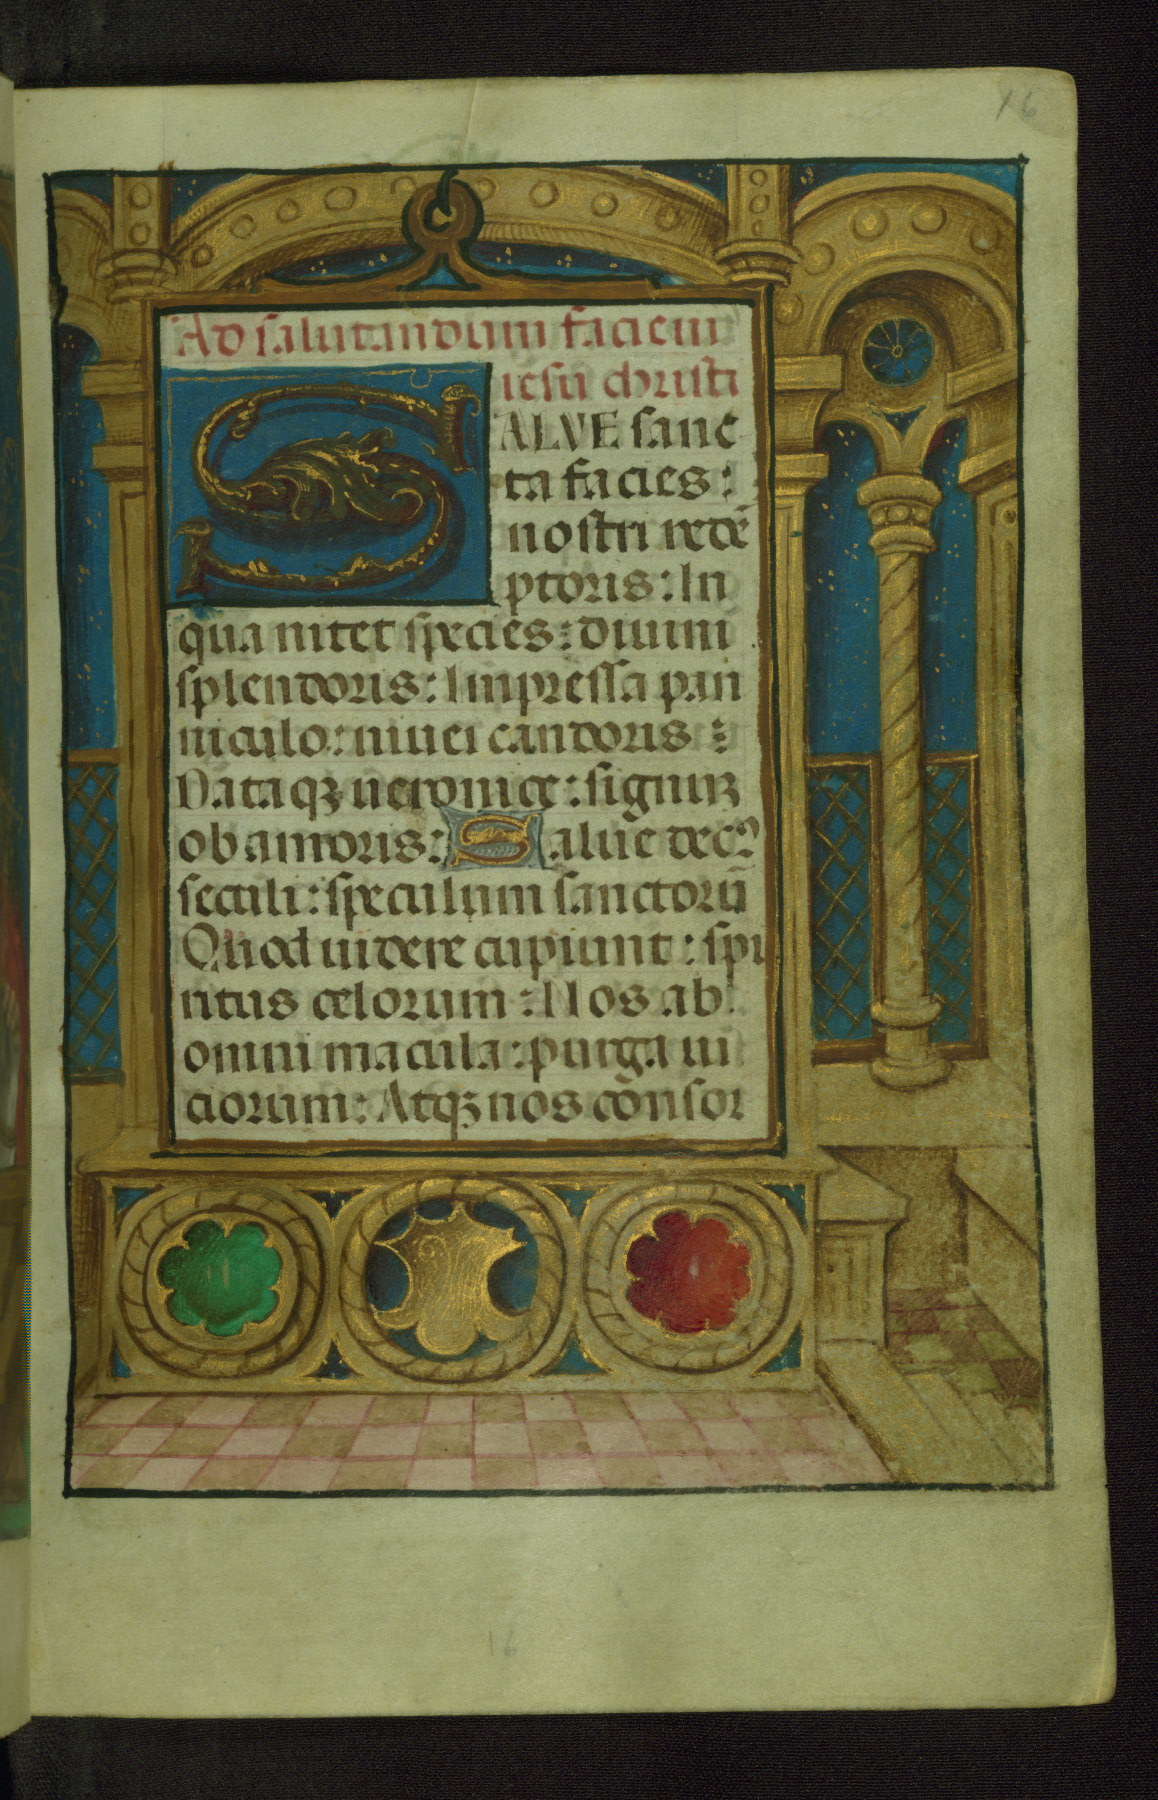 16
Ad salutandum faciem
iesu christi
SALVE sanc
ta facies:
nostri redē
ptoris: In
qua nitet species: diuini
splendoris: Impressa pan
niculo: niuei candoris:
Dataqꝫ ueronice: signūꝫ
ob amoris: Salue decꝰ
seculi: speculum sanctorū
Quod uidere cupiunt: spi
ritus celorum: Nos ab
omni macula: purga ui
ciorum: Atqꝫ nos consor
16